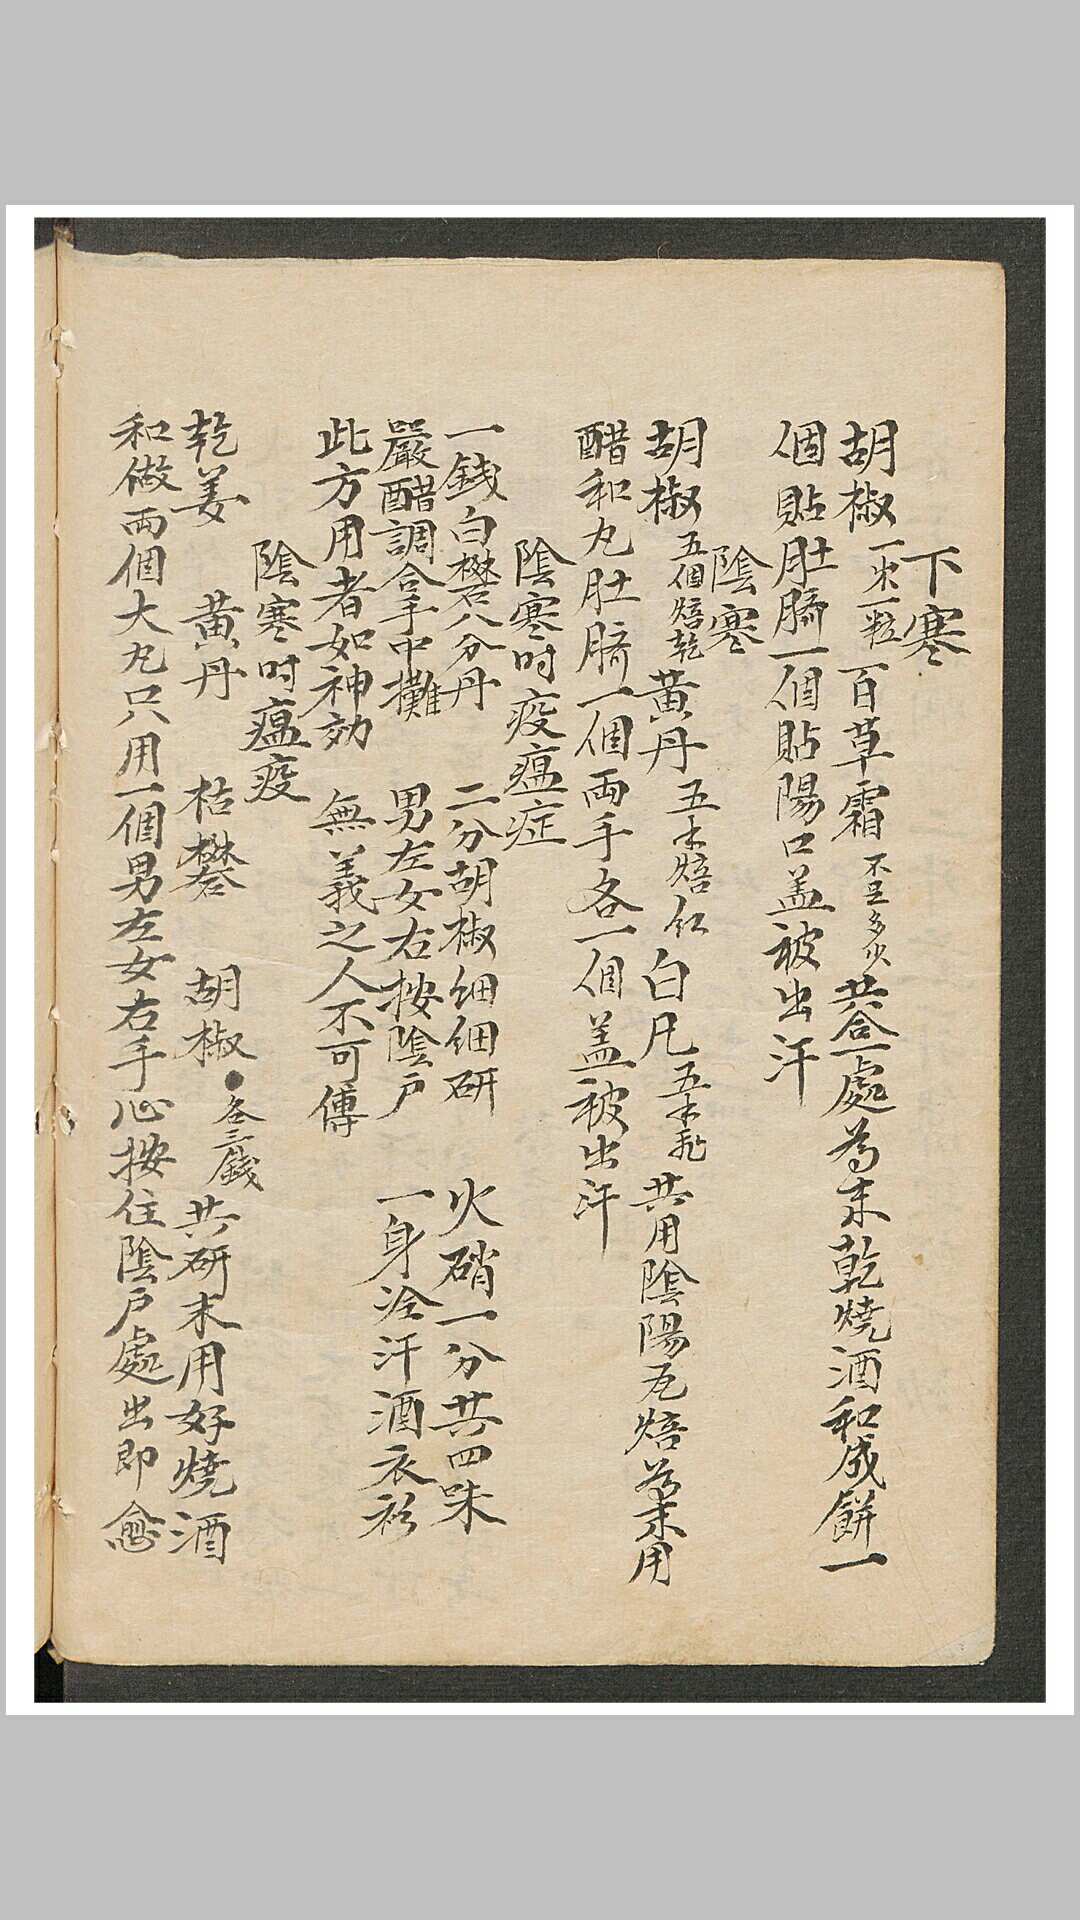 下寒
胡椒一岁一粒 百草霜不旦多少共合一處為末乾燒酒和成餅一
個貼肚臍一個貼陽口盖被出汗
陰寒
胡椒五個焙乾黃丹五木焙红白凡五木 共用陰陽瓦焙為末用
醋和丸肚臍一個両手各一個盖被出汗
陰寒时疫瘟症
一錢白礬八分丹 二分胡椒细细研 火硝一分共四味
嚴醋調合手中攤 男左女右按陰户 一身淦汗洒衣衫
此方用者如神効 無義之人不可傳
陰寒时瘟疫
乾姜 黃丹 枯礬 胡椒·各三錢 共研末用好燒酒
和做両個大丸只用一個男左女右手心按住陰户處出即愈